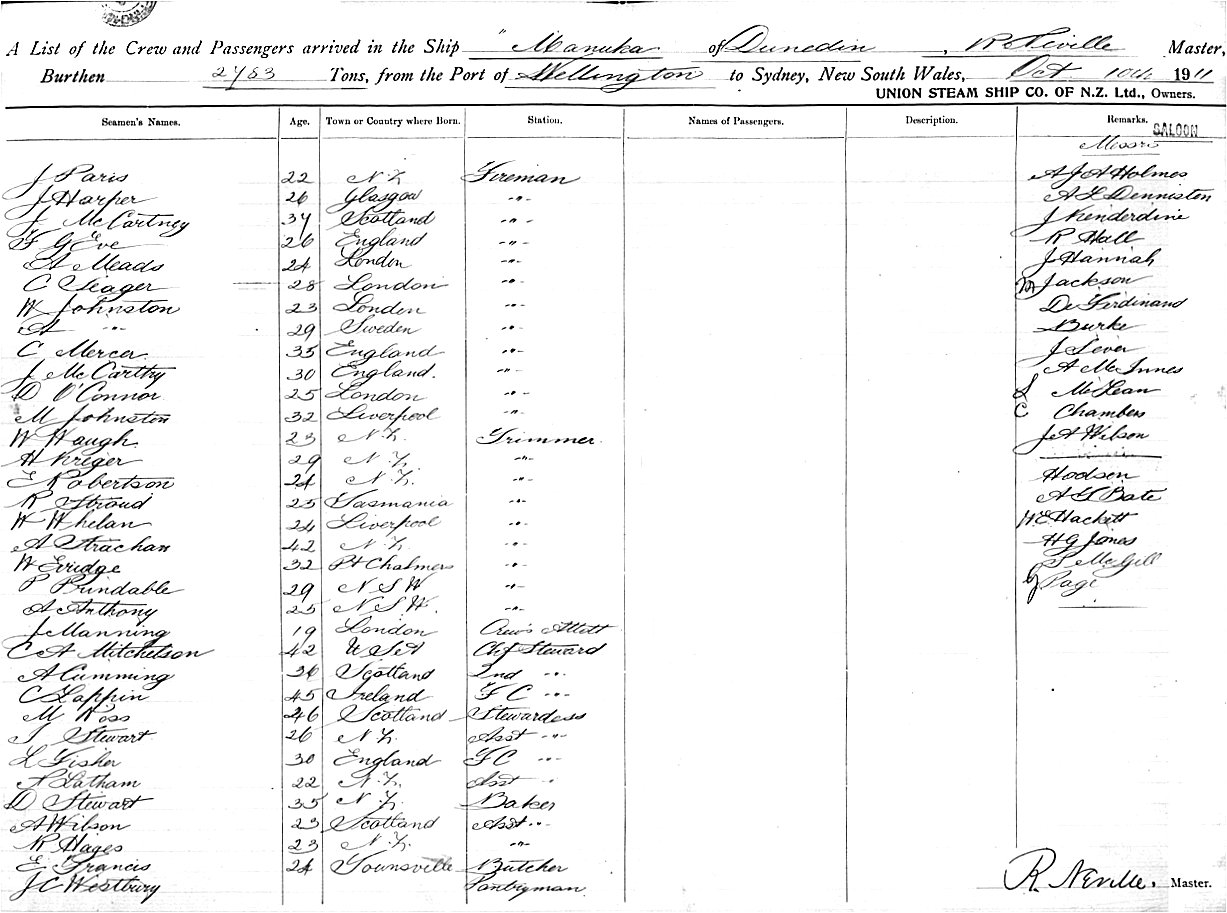 A List of the Crew and Passengers arrived in the Ship "Manuka of Dunedin, R Neville Master,
Burthen 2783 Tons, from the Port of Wellington to Sydney, New South Wales, Oct 10th 1911
UNION STEAM SHIP CO. OF N.Z. Ltd., Owners.
Seamen's Names. Age. Town or Country where Born. Station. Names of Passengers. Description. Remarks. SALOON
Messrs
J Paris 22 N.Z. Fireman A J A Holmes
J Harper 26 Glasgow -"- A L Denniston
J McCartney 37 Scotland -"- J Kenderdine
F G Eve 26 England -"- R Hall
A Meads 24 London -"- J Hannah
C Seager 28 London -"- M Jackson
W Johnston 23 London -"- De Ferdinand
A -"- 29 Sweden -"- Burke
C Mercer 35 England -"- J Lever
J McCarthy 30 England. -"- A McInnes
D O'Connor 25 London -"- S McLean
M Johnston 32 Liverpool -"- C Chambers
W Waugh 23 N.Z. Trimmer J A Wilson
H Kriger 29 N.Z. -"-
E Robertson 24 N.Z. -"- Hodson
R Stroud 25 Tasmania -"- A G Bate
W Whelan 24 Liverpool -"- H.E. Hackett
A Strachan 42 N.Z. -"- H G Jones
W Evridge 32 Pt Chalmers -"- S McGill
P Prindable 29 N S W -"- G Page
A Anthony 25 N S W. -"-
J Manning 19 London Crew's Attdt
C A Mitchelson 42 U S A Chf Steward
A Cumming 36 Scotland 2nd -"-
C Lappin 45 Ireland F C -"-
M Ross 46 Scotland Stewardess
J Stewart 26 N.Z. Asst -"-
L Fisher 30 England F C -"-
F Latham 22 N.Z. Asst "
D Stewart 35 N.Z. Baker
A Wilson 23 Scotland Asst -"-
R Hages 23 N.Z. -"-
E Francis 24 Townsville Butcher
J C Westbury Pantryman
R. Neville. Master.